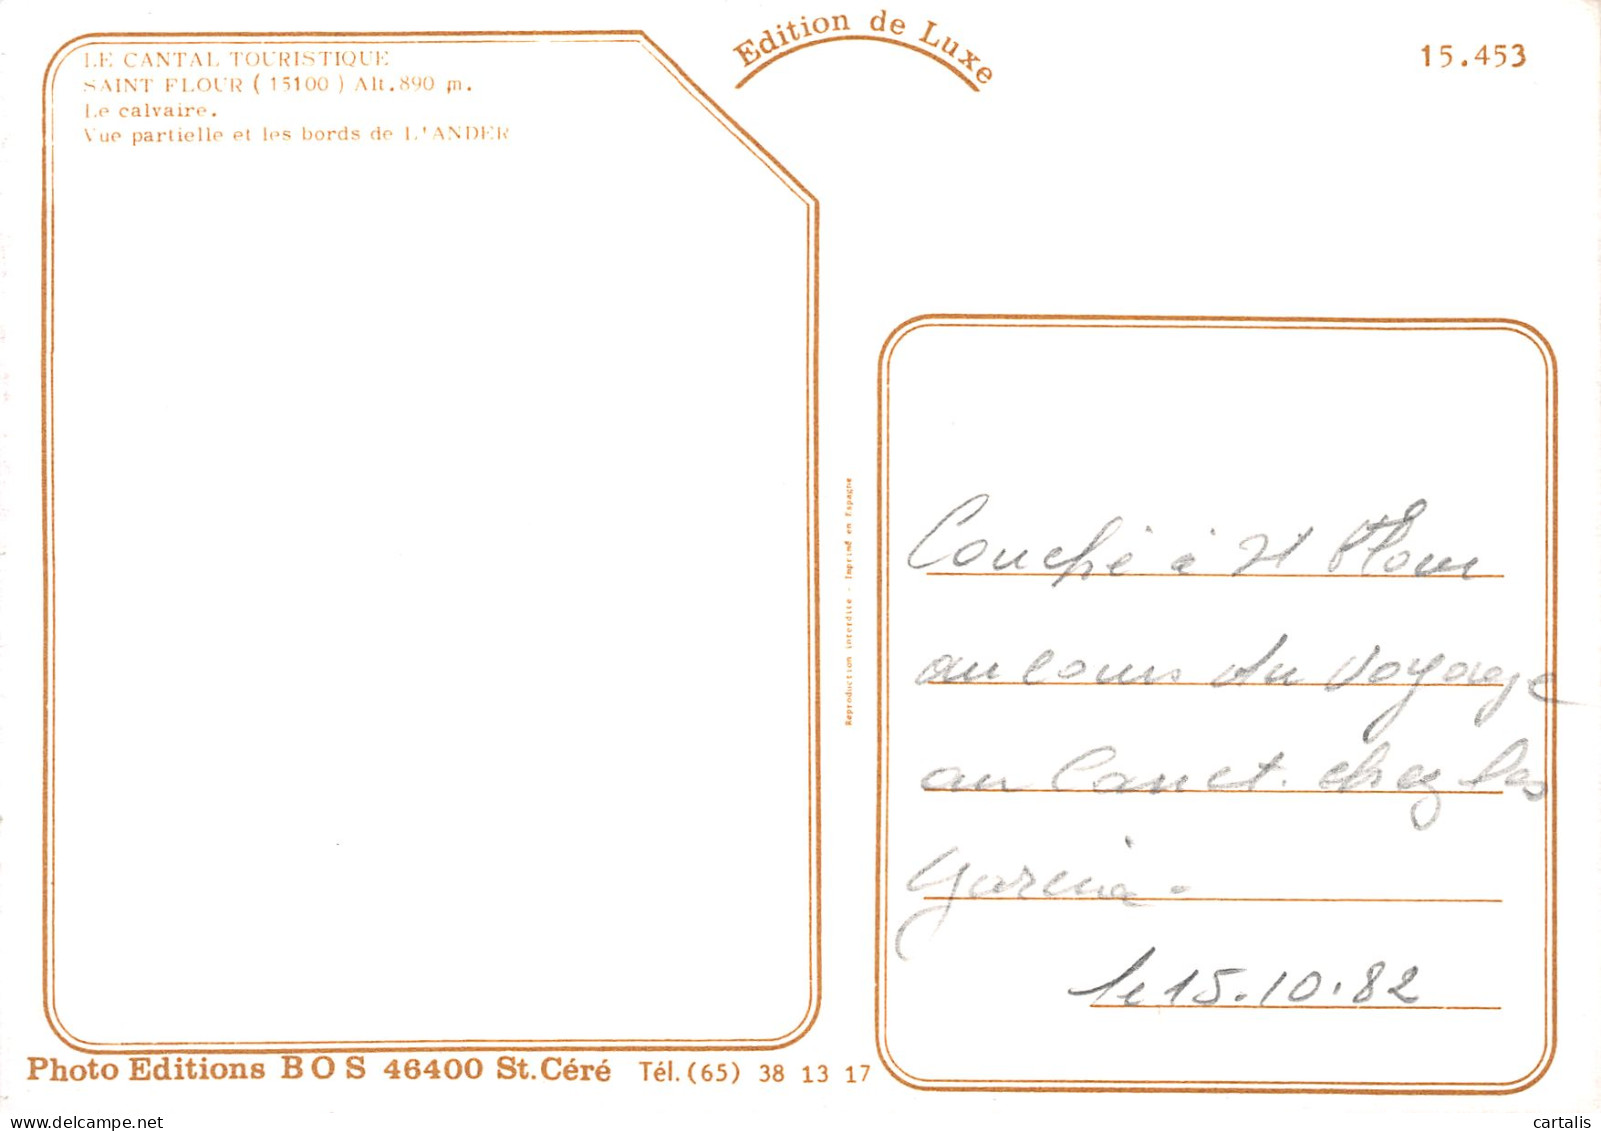 LE CANTAL TOURISTIQUE
SAINT FLOUR ( 15100 ) Alt.890 m.
Le calvaire.
Vue partielle et les bords de L'ANDER
Edition de Luxe
15.453
Reproduction interdite - Imprimé en Espagne
Couché à St Flour
au cours du voyage
au Canet. chez les
Garcia.
le 15.10.82
Photo Editions BOS 46400 St.Céré Tél.(65) 38 13 17
cartalis